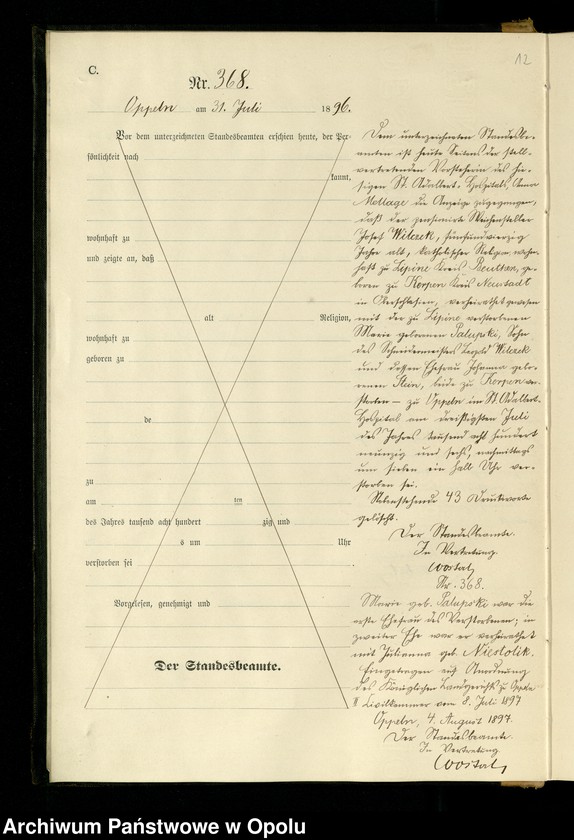 12
C.
Nr. 368.
Oppeln am 31. Juli 1896.
Vor dem unterzeichneten Standesbeamten erschien heute, der Per-
sönlichkeit nach
kannt,
wohnhaft zu
und zeigte an, daß
alt Religion,
wohnhaft zu
geboren zu
de
zu
am ten
des Jahres tausend acht hundert zig und
s um Uhr
verstorben sei
Vorgelesen, genehmigt und
Der Standesbeamte.
Dem unterzeichneten Standesbe-
amten ist heute Seitens der stell-
vertretenden Vorsteherin des hie-
sigen St. Adalbert-Hospitals, Anna
Mettage die Anzeige zugegangen,
daß der pensionirte Weichensteller
Josef Witczek, fünfundvierzig
Jahre alt, katholischer Religion, wohn-
haft zu Lipine Kreis Beuthen, ge-
boren zu Kerpen Kreis Neustadt
in Oberschlesien, verheirathet gewesen
mit der zu Lipine verstorbenen
Marie geborenen Palupski, Sohn
des Schneidermeisters Leopold Witczek
und dessen Ehefrau Johanna gebo-
renen Stein, beide zu Kerpen ver-
storben – zu Oppeln im St. Adalbert-
Hospital am dreißigsten Juli
des Jahres tausend acht hundert
neunzig und sechs, nachmittags
um sieben ein halb Uhr ver-
storben sei.
Nebenstehende 43 Druckworte
gelöscht.
Der Standesbeamte.
In Vertretung.
Wostal
Nr. 368.
Marie geb. Palupski war die
erste Ehefrau des Verstorbenen; in
zweiter Ehe war er verheirathet
mit Julianna geb. Niestolik.
Eingetragen auf Anordnung
des Königlichen Landgerichts zu Oppeln
II Civilkammer vom 8. Juli 1897
Oppeln, 4. August 1897.
Der Standesbeamte.
In Vertretung
Wostal
Archiwum Państwowe w Opolu